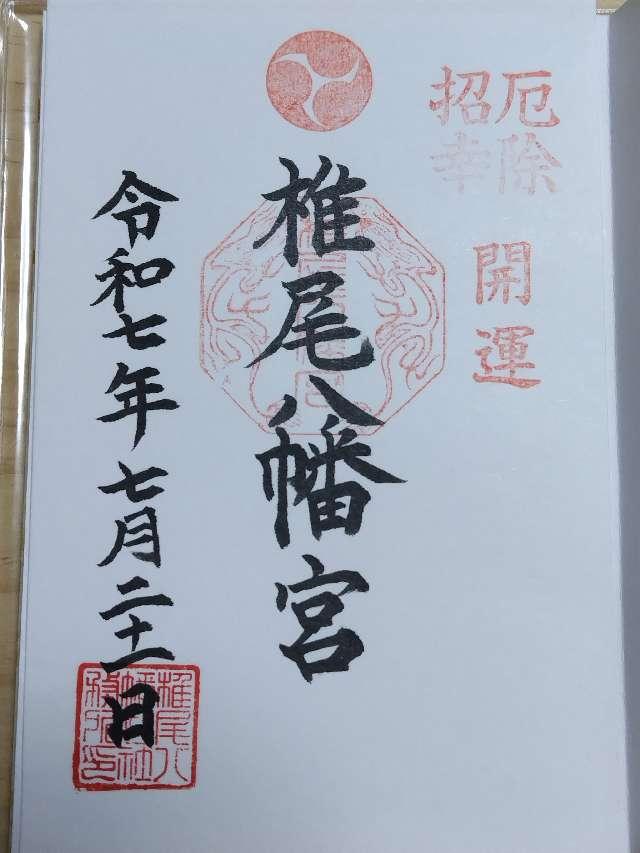 厄除
招幸
開運
椎尾八幡宮
令和七年七月二十一日
椎尾八
幡宮社
務所印